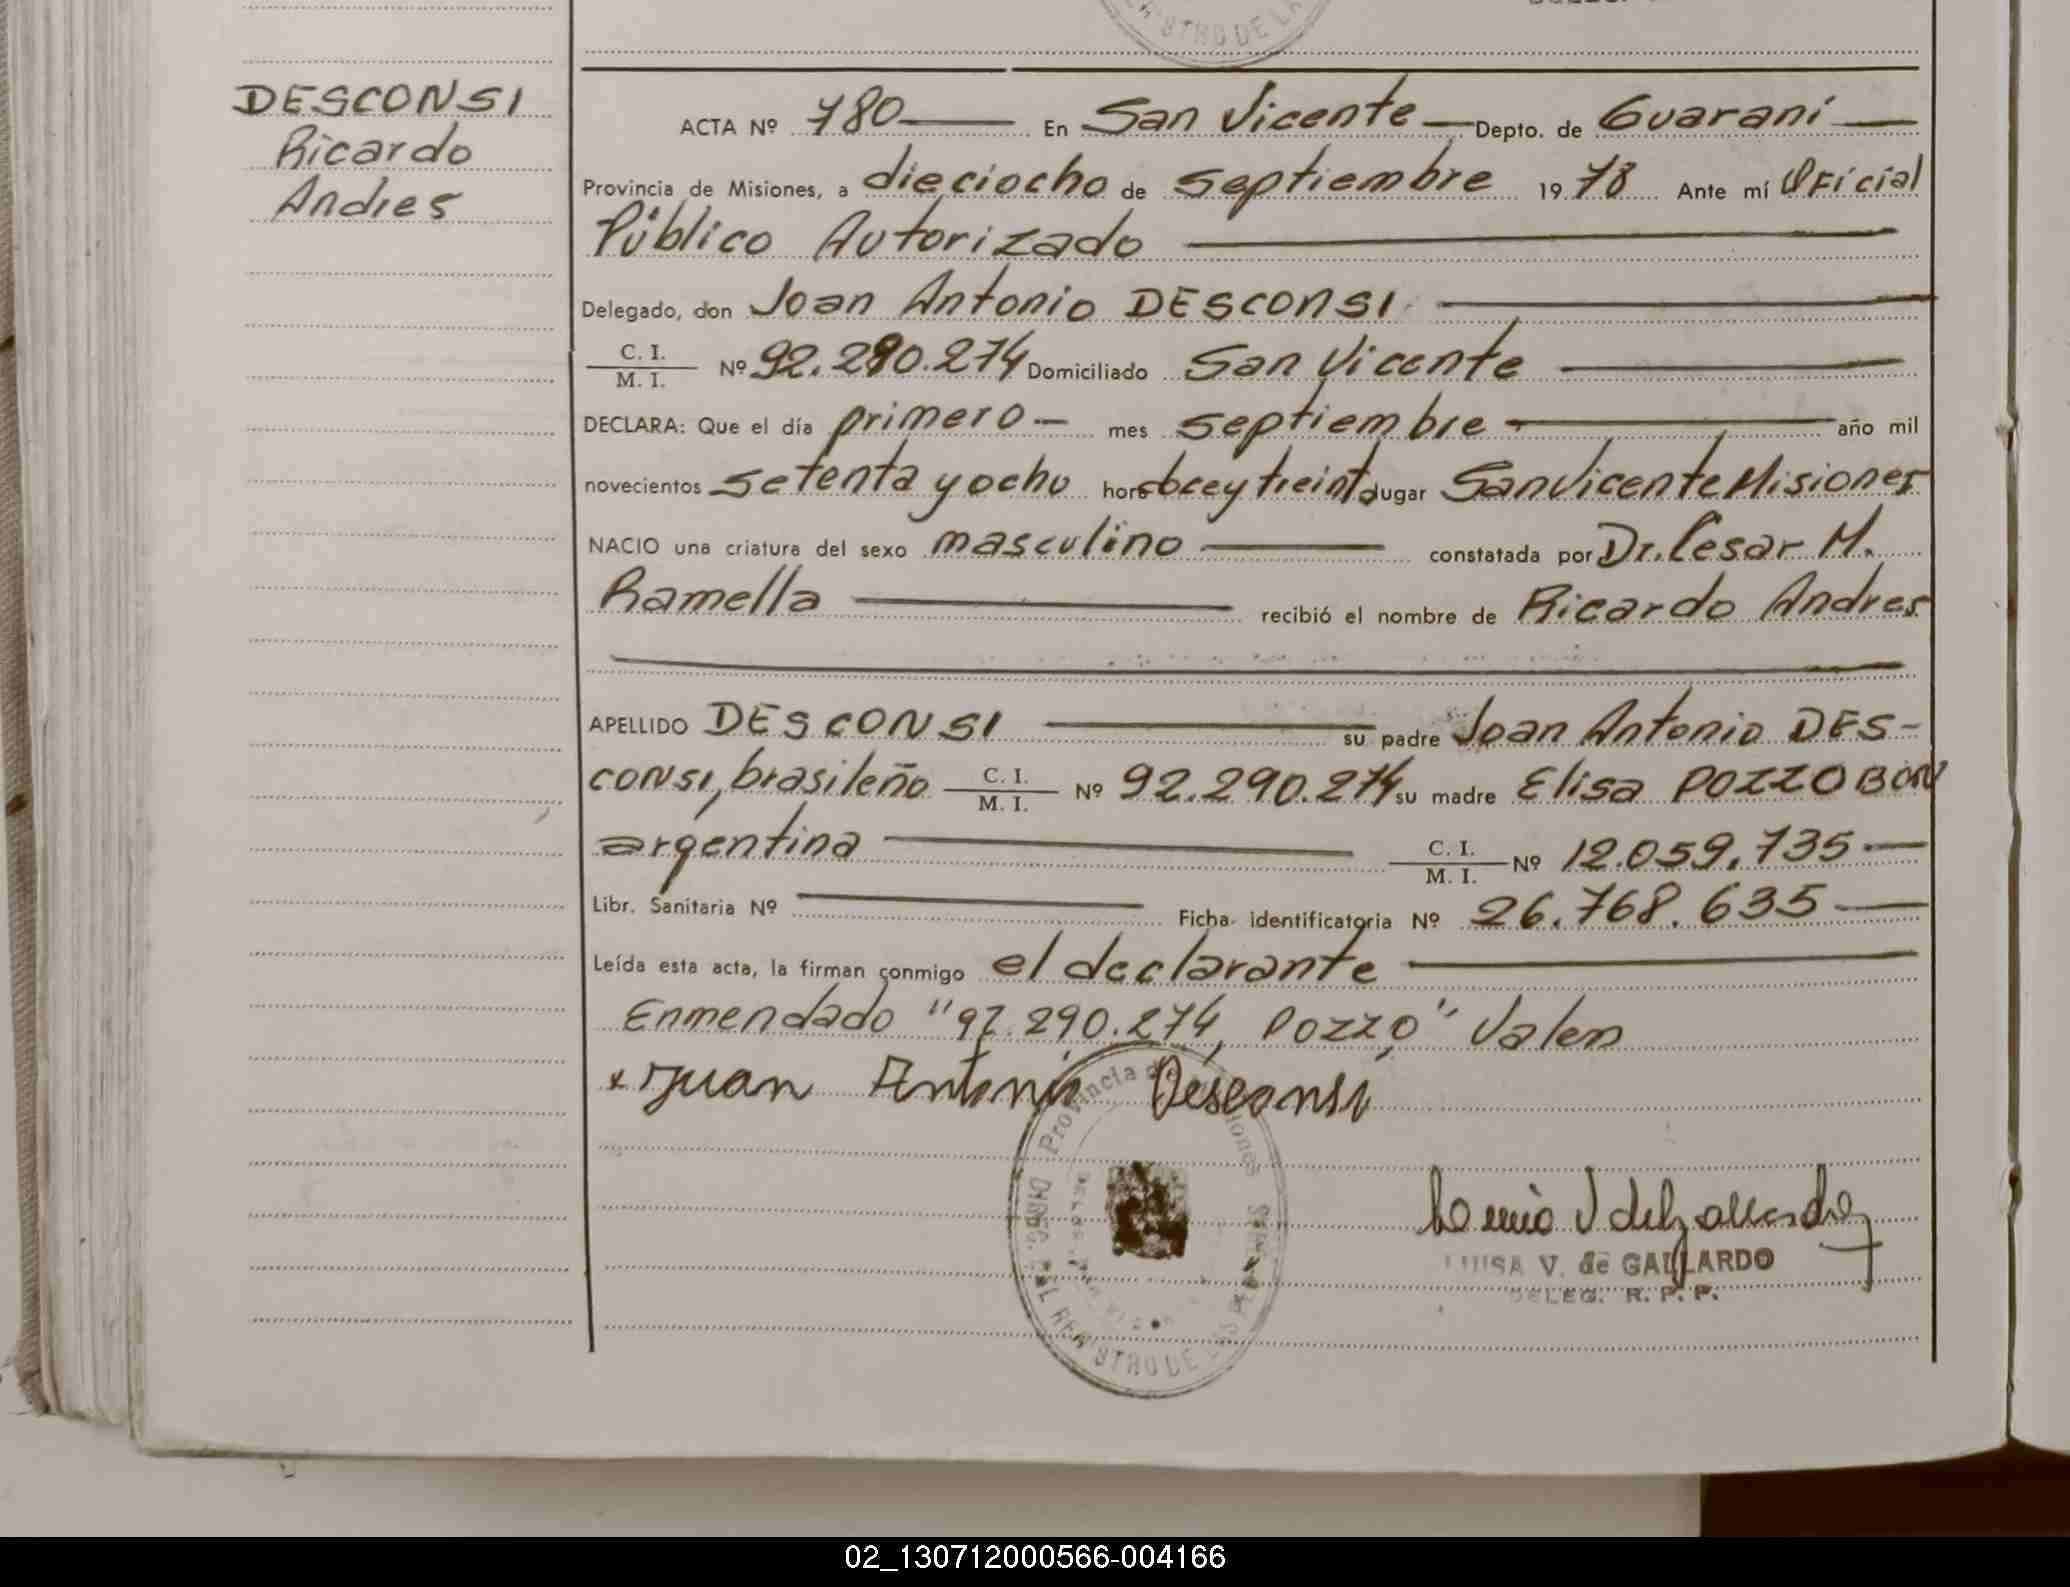 DESCONSI
Ricardo
Andres
ACTA Nº 780 En San Vicente Depto. de Guaraní
Provincia de Misiones, a dieciocho de septiembre 1978 Ante mí Oficial
Público Autorizado
Delegado, don Joan Antonio DESCONSI
C. I.
M. I. Nº 92.290.274 Domiciliado San Vicente
DECLARA: Que el día primero mes septiembre año mil
novecientos setenta y ocho hora once y treinta lugar San Vicente Misiones
NACIO una criatura del sexo masculino constatada por Dr. Cesar M.
Ramella recibió el nombre de Ricardo Andres
APELLIDO DESCONSI su padre Joan Antonio DES-
CONSI, brasileño C. I. M. I. Nº 92.290.274 su madre Elisa POZZOBON
argentina C. I. M. I. Nº 12.059.735
Libr. Sanitaria Nº Ficha identificatoria Nº 26.768.635
Leída esta acta, la firman conmigo el declarante
Enmendado "92.290.274, Pozzo" Valen
x Juan Antonio Desconsi
Provincia de Misiones
DIREC. DEL REGISTRO DE LAS PERSONAS
LUISA V. de GALLARDO
DELEG. R. P. P.
02_130712000566-004166